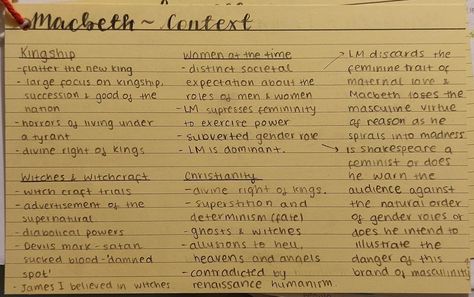 Macbeth ~ Context
Kingship
- flatter the new king
- large focus on kingship,
succession & good of the
nation
- horrors of living under
a tyrant
- divine right of kings
Women at the time
- distinct societal
expectation about the
roles of men & women
- LM supresses femininity
to exercise power
- subverted gender role
- LM is dominant.
LM discards the
feminine trait of
maternal love &
Macbeth loses the
masculine virtue
of reason as he
spirals into madness
is shakespeare a
feminist or does
he warn the
audience against
the natural order
of gender roles or
does he intend to
illustrate the
danger of this
brand of masculinity
Witches & Witchcraft
- witch craft trials
- advertisement of the
supernatural
- diabolical powers
- Devils mark - satan
sucked blood - 'damned
spot'
- James I believed in witches
Christianity
- divine right of kings.
- superstition and
determinism (fate)
- ghosts & witches
- allusions to hell,
heavens and angels
- contradicted by
renaissance humanism.